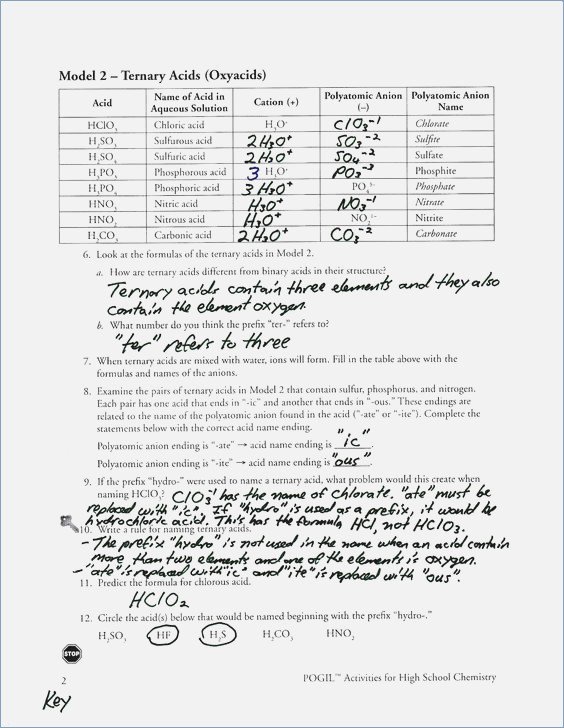 Model 2 – Ternary Acids (Oxyacids)
Acid Name of Acid in Aqueous Solution Cation (+) Polyatomic Anion (–) Polyatomic Anion Name
HClO₃ Chloric acid H₃O⁺ ClO₃⁻¹ Chlorate
H₂SO₃ Sulfurous acid 2H₃O⁺ SO₃⁻² Sulfite
H₂SO₄ Sulfuric acid 2H₃O⁺ SO₄⁻² Sulfate
H₃PO₃ Phosphorous acid 3 H₃O⁺ PO₃⁻³ Phosphite
H₃PO₄ Phosphoric acid 3 H₃O⁺ PO₄³⁻ Phosphate
HNO₃ Nitric acid H₃O⁺ NO₃⁻¹ Nitrate
HNO₂ Nitrous acid H₃O⁺ NO₂¹⁻ Nitrite
H₂CO₃ Carbonic acid 2H₃O⁺ CO₃⁻² Carbonate
6. Look at the formulas of the ternary acids in Model 2.
a. How are ternary acids different from binary acids in their structure?
Ternary acids contain three elements and they also
contain the element oxygen.
b. What number do you think the prefix "ter-" refers to?
"ter" refers to three
7. When ternary acids are mixed with water, ions will form. Fill in the table above with the
formulas and names of the anions.
8. Examine the pairs of ternary acids in Model 2 that contain sulfur, phosphorus, and nitrogen.
Each pair has one acid that ends in "-ic" and another that ends in "-ous." These endings are
related to the name of the polyatomic anion found in the acid ("-ate" or "-ite"). Complete the
statements below with the correct acid name ending.
Polyatomic anion ending is "-ate" → acid name ending is "ic".
Polyatomic anion ending is "-ite" → acid name ending is "ous".
9. If the prefix "hydro-" were used to name a ternary acid, what problem would this create when
naming HClO₃? ClO₃⁻¹ has the name of chlorate. "ate" must be
replaced with "ic". If "hydro" is used as a prefix, it would be
hydrochloric acid. This has the formula HCl, not HClO₃.
10. Write a rule for naming ternary acids.
- The prefix "hydro" is not used in the name when an acid contain
more than two elements and one of the elements is oxygen.
- "ate" is replaced with "ic" and "ite" is replaced with "ous".
11. Predict the formula for chlorous acid.
HClO₂
12. Circle the acid(s) below that would be named beginning with the prefix "hydro-."
H₂SO₃ HF H₂S H₂CO₃ HNO₂
STOP
2 POGIL™ Activities for High School Chemistry
Key